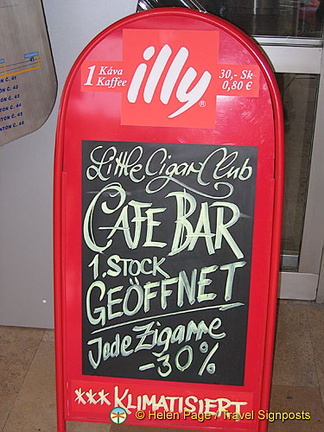 illy®
1 Káva
Kaffee
30,- Sk
0,80 €
Little Cigar Club
CAFE BAR
1. STOCK
GEÖFFNET
Jede Zigarre
-30%
*** KLIMATISIERT
© Helen Page / Travel Signposts